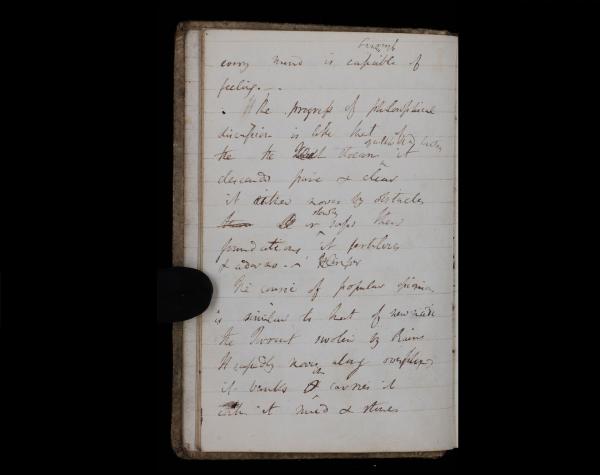 every mind is capable of
feeling. -
The progress of philosophical
discussion is like that of
the the stream it
descends pure & clear
it either moves by obstacles
slowly
or saps their
foundations it fertilizes
& adorns -
The course of popular opinion
is similar to that of new made
the Torrent swolen by Rains
It rapidly moves along overflows
it banks & carries
with it mud & stones